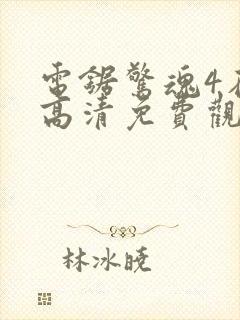 電鋸驚魂4
高清免費觀
林冰曉